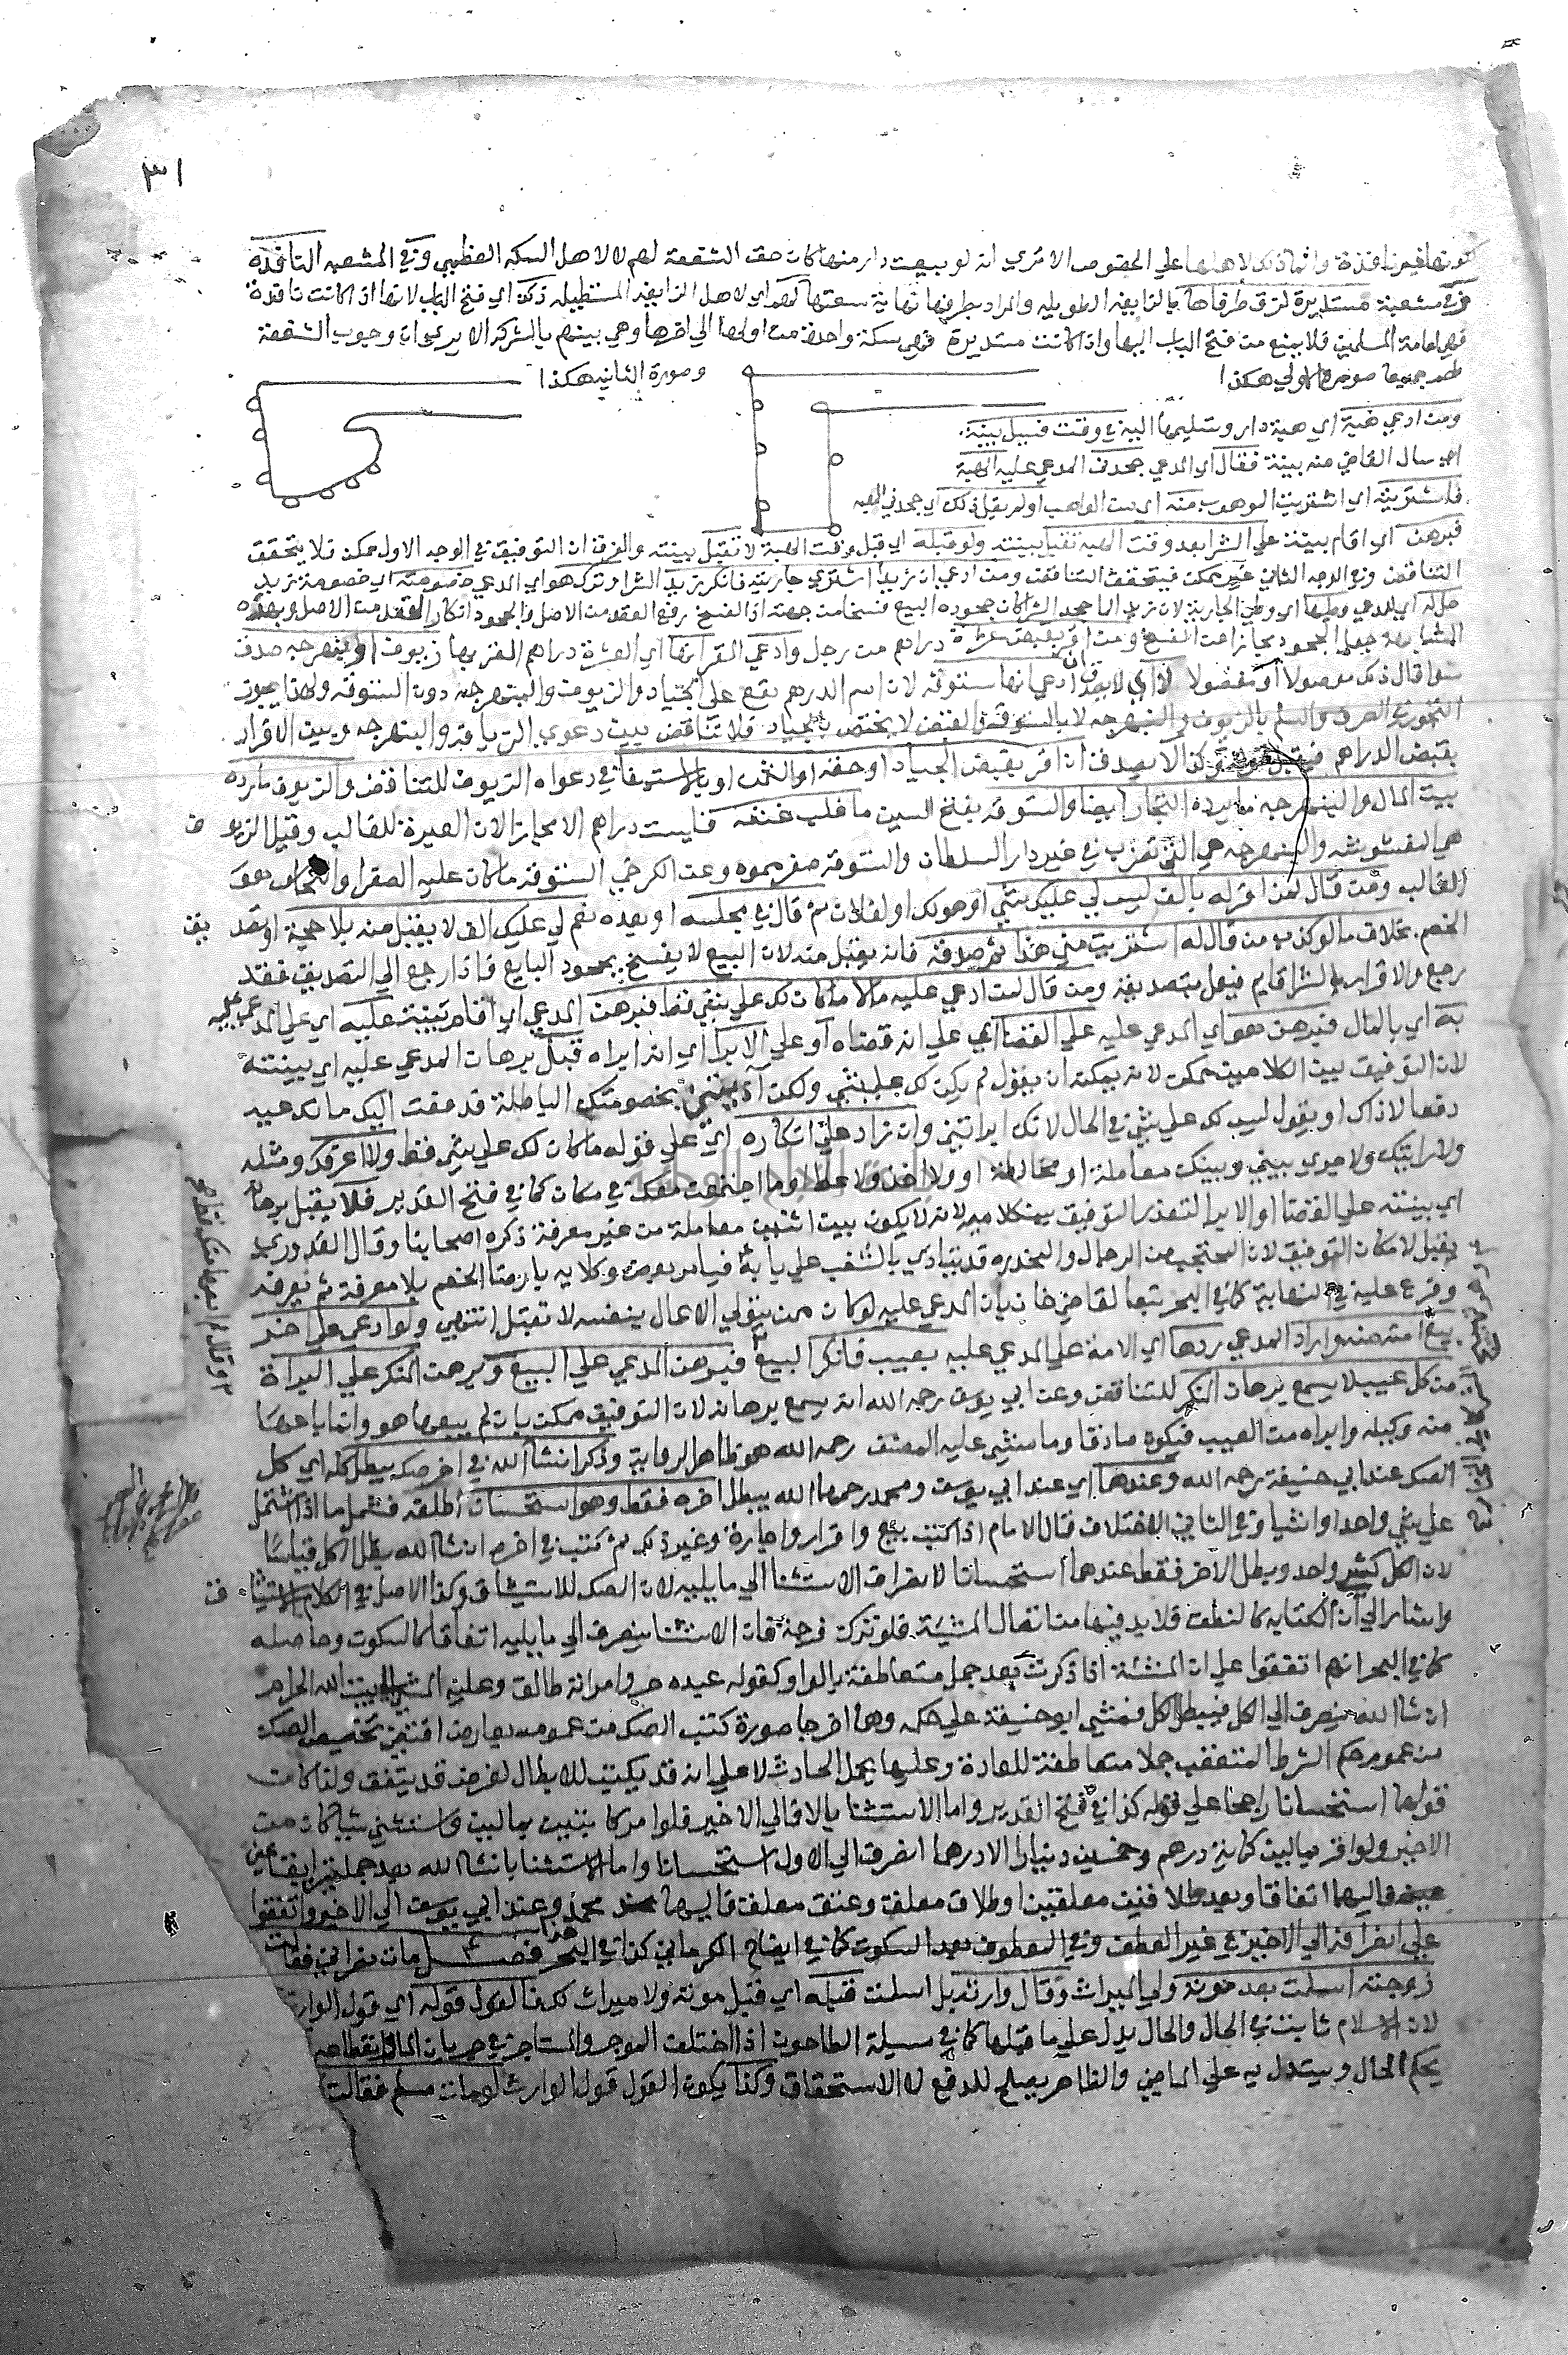 ٣١
كونها غير نافذة وانما ذلك لاهلها علي الخصوص الا تري انه لو بيعت دار منها كان حق الشفعة لهم لا لاهل السكه العظمي وفي المتشعبه النافذه
وفي متشعبة مستديرة لزق طرفاها بالزايغه الطويله والمراد بطرفها نهاية سعتها لهم اي لاهل الزايغه المستطيله ذلك اي فتح الباب لانها اذا كانت نافذة
فهي لعامة المسلمين فلا يمنع من فتح الباب اليها واذا كانت مستديرة فهي سكة واحدة من اولها الي اخرها وهي بينهم بالشركه الا يري ان وجوب الشفعة
لهم جميعا صورة الاولي هكذا
وصورة الثانيه هكذا
ومن ادعي هبة اي هبة دار وتسليمها اليه في وقت فسيل بينة
اي سال القاضي منه بينة فقال اي المدعي جحدني المدعي عليه الهبة
فاشتريته اي اشتريت الموهوب منه اي من الواهب او لم يقل ذلك اي جحدني الهبه
فبرهن اي اقام بينة علي الشرا بعد وقت الهبه تقبل بينته ولو قبله اي قبل وقت الهبة لا تقبل بينته والفرق ان التوفيق في الوجه الاول ممكن فلا يتحقق
التناقض وفي الوجه الثاني غير ممكن فيتحقق التناقض ومن ادعي ان زيدا اشتري جاريته فانكر زيد الشرا وترك هو اي المدعي خصومته اي خصومة زيد
حل له اي للمدعي وطيها اي وطي الجارية لان زيدا لما جحد الشرا كان جحوده البيع فسخا من جهته اذا الفسخ رفع العقد من الاصل والجحود انكار العقد من الاصل وبهذه
المشابهه جعل الجحود مجازا عن الفسخ ومن اقر بقبض عشرة دراهم من رجل وادعي المقر انها اي العشرة دراهم المقر بها زيوف او بنهرجه صدق
سوا قال ذلك موصولا او مفصولا لا اي لا يصدق ان ادعي انها ستوقه لان اسم الدرهم يقع علي الجياد والزيوف والبنهرجه دون الستوقه ولهذا يجوز
التجوز في الصرف والسلم بالزيوف والبنهرجه لا بالستوقه والقبض لا يختص بالجياد فلا تناقض بين دعوي الزيافه والبنهرجه وبين الاقرار
بقبض الدراهم فيقبل قوله وكذا لا يصدق ان اقر بقبض الجياد او حقه او الثمن او بالاستيفا في دعواه الزيوف للتناقض والزيوف ما رده
بيت المال والبنهرجه ما يرده التجار ايضا والستوقه بفتح السين ما غلب غشه فليست دراهم الا مجازا لان العبرة للغالب وقيل الزيوف
هي المغشوشه والبنهرجه هي التي تضرب في غير دار السلطان والستوقه صفر مموه وعن الكرخي الستوقه ما كان عليه الصفر او النحاس هو
الغالب ومن قال لمن اقر له بالف ليس لي عليك شي او هو لك او لفلان ثم قال في مجلسه او بعده نعم لي عليك الف لا يقبل منه بلا حجة او تصديق
الخصم بخلاف ما لو كذب من قال له اشتريت مني هذا ثم صدقه فانه يقبل منه لان البيع لا يفسخ بجحود البايع فاذا رجع الي التصديق فقد
رجع والاقرار بالشرا قايم فيعمل بتصديقه ومن قال لمن ادعي عليه مالا ما كان لك علي شي قط فبرهن المدعي اي اقام بينة عليه اي علي المدعي عليه
به اي بالمال فبرهن هو اي المدعي عليه علي القضا اي علي انه قضاه او علي الابرا اي انه ابراه قبل برهان المدعي عليه اي بينته
لان التوفيق بين الكلامين ممكن لانه يمكنه ان يقول لم يكن لك علي شي ولكن آذيتني بخصومتك الباطلة فدفعت اليك ما تدعيه
دفعا لاذاك او يقول ليس لك علي شي في الحال لانك ابراتني وان زاد علي انكاره اي علي قوله ما كان لك علي شي قط ولا اعرفك ومثله
ولا رايتك ولا جري بيني وبينك معاملة او مخالطة او ولا اخذ ولا عطا وما اجتمعت معك في مكان كما في فتح القدير فلا يقبل برهانه
اي بينته علي القضا او الابرا لتعذر التوفيق بين كلاميه لانه لا يكون بين اثنين معاملة من غير معرفة ذكره اصحابنا وقال القدوري
يقبل لامكان التوفيق لان المحتجب من الرجال والمخدره قد يتاذي بالشغب علي بابه فيامر بعض وكلايه بارضا الخصم بلا معرفة ثم يعرفه
وفرع عليه في النهاية كما في البحر تبعا لقاضيخان بان المدعي عليه لو كان ممن يتولي الاعمال بنفسه لا تقبل انتهي ولو ادعي علي اخر
بيع امته منه واراد المدعي ردها اي الامة علي المدعي عليه بعيب فانكر البيع فبرهن المدعي علي البيع وبرهن المنكر علي البراة
من كل عيب لا يسمع برهان المنكر للتناقض وعن ابي يوسف رحمه الله انه يسمع برهانه لان التوفيق ممكن بان لم يبعها هو وانما باعها
منه وكيله وابراه من العيب فيكون صادقا وما مشي عليه المصنف رحمه الله هو ظاهر الرواية وذكر انشا الله في اخر صك يبطل كله اي كل
الصك عند ابي حنيفة رحمه الله وعندهما اي عند ابي يوسف ومحمد رحمهما الله يبطل اخره فقط وهو استحسان اطلقه فشمل ما اذا اشتمل
علي شي واحد او اشيا وفي الثاني الاختلاف قال الامام اذا كتب بيع واقرار واجارة وغير ذلك ثم كتب في اخره ان شا الله يبطل الكل قياسا
لان الكل كشي واحد ويبطل الآخر فقط عندهما استحسانا لانصراف الاستثنا الي ما يليه لان الصك للاستيثاق وكذا الاصل في الكلام
واشار الي ان الكتابه كالنطق فلا بد فيها من اتصال المشيئة فلو تركت فرجة فان الاستثنا ينصرف الي ما يليه اتفاقا كالسكوت وحاصله
كما في البحر انهم اتفقوا علي ان المشئة اذا ذكرت بعد جمل متعاطفة بالواو كقوله عبده حر وامراته طالق وعليه المشي الي بيت الله الحرام
ان شا الله ينصرف الي الكل فيبطل الكل فمشي ابو حنيفة علي حكمه وهما اخرجا صورة كتب الصك من عمومه بعارض اقتضي تخصيص الصك
من عموم حكم الشرط المتعقب جملا متعاطفة للعادة وعليها يحمل الحادث لا علي انه قد يكتب للابطال لغرض قد يتفق ولذا كانت
قولهما استحسانا راجحا علي قوله كذا في فتح القدير واما الاستثنا بالا فالي الاخير فلو اقر كاتبين بمالين واستثني شيا كان من
الاخير ولو اقر بمالين كماية درهم وخمسين دينارا الا درهما انصرف الي الاول استحسانا واما الاستثنا بانشا الله بعد جملتين
فاليهما اتفاقا وبعد طلاقين معلقين او طلاق معلق وعتق معلق فاليهما عند محمد وعند ابي يوسف الي الاخير واتفقوا
علي انصرافه الي الاخير في غير العطف وفي المعطوف بعد السكوت كما في ايضاح الكرماني كذا في البحر فصل مات نصراني فقالت
زوجته اسلمت بعد موته ولي الميراث وقال وارثه بل اسلمت قبله اي قبل موته ولا ميراث لك فالقول قوله اي قول الوارث
لان الاسلام ثابت في الحال والحال يدل علي ما قبلها كما في مسيلة الطاحون اذا اختلف الموجر والمستاجر في جريان الماء وانقطاعه
يحكم الحال ويستدل به علي الماضي والظاهر يصلح للدفع لا الاستحقاق وكذا يكون القول قول الوارث لو مات مسلم فقالت